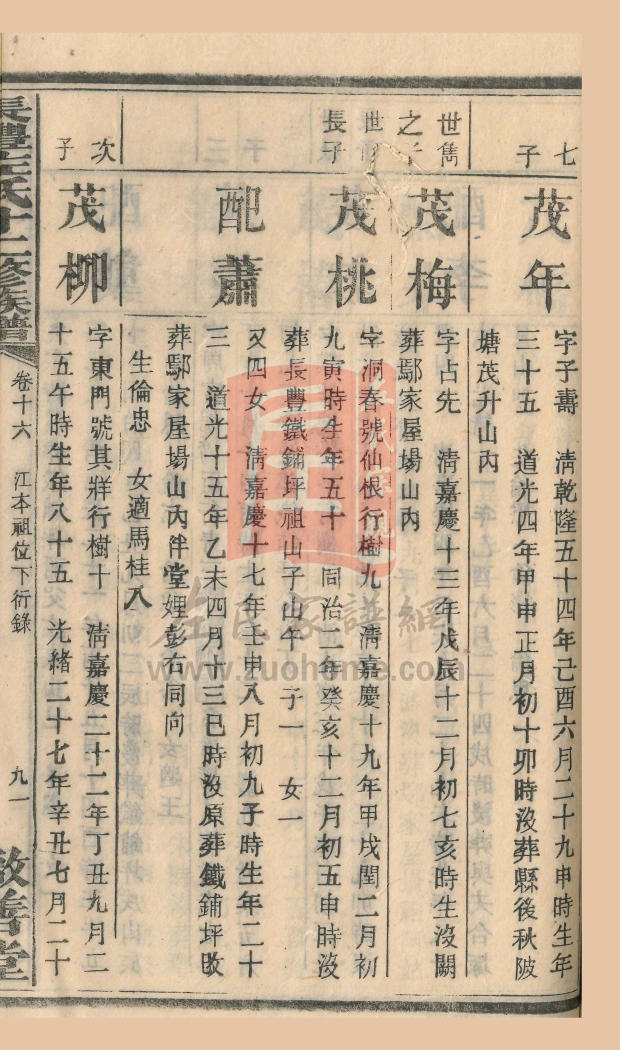 七子
茂年
字子壽　清乾隆五十四年己酉六月二十九申時生年
三十五　道光四年甲申正月初十卯時沒葬縣後秋陂
塘茂升山內
世雋之子
茂梅
字占先　清嘉慶十三年戊辰十二月初七亥時生沒闕
葬鄢家屋場山內
長子
茂桃
字洞春號仙根行樹九　清嘉慶十九年甲戌閏二月初
九寅時生年五十　同治二年癸亥十二月初五申時沒
葬長豐鐵鋪坪祖山子山午　子一　女一
配蕭
又四女　清嘉慶十七年壬申八月初九子時生年二十
三　道光十五年乙未四月十三巳時沒原葬鐵鋪坪改
葬鄢家屋場山內伴堂娌彭右同向
生倫忠　女適馬桂八
次子
茂柳
字東門號其牂行樹十　清嘉慶二十二年丁丑九月二
十五午時生年八十五　光緒二十七年辛丑七月二十
長豐左氏十二修族譜
卷十六
江本祖位下行錄
九一
敦善堂
左氏家譜網
www.zuohome.com